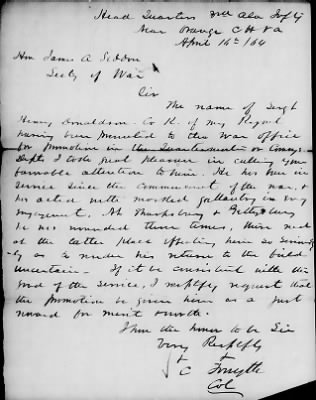 Head Quarters 3rd Ala Infty
Near Orange C H Va
April 16th/64
Hon James A Seddon
Secty of War
Sir
The name of Sergt
Henry Donaldson Co K. of my Regmt
having been presented to the War Office
for promotion in the Quartermaster or Comsy
Depts I take great pleasure in calling your
favorable attention to him. He has been in
service since the commencement of the war, &
has acted with marked gallantry in every
engagement. At Sharpsburg & Gettysburg
he was wounded three times, those recd
at the latter place affecting him so serious
ly as to render his return to the field
uncertain. If it be consistent with the
good of the service, I respectfly request that
the promotion be given him as a just
reward for merit & worth.
I have the honor to be Sir
Very Respctfly
C Forsyth
Col